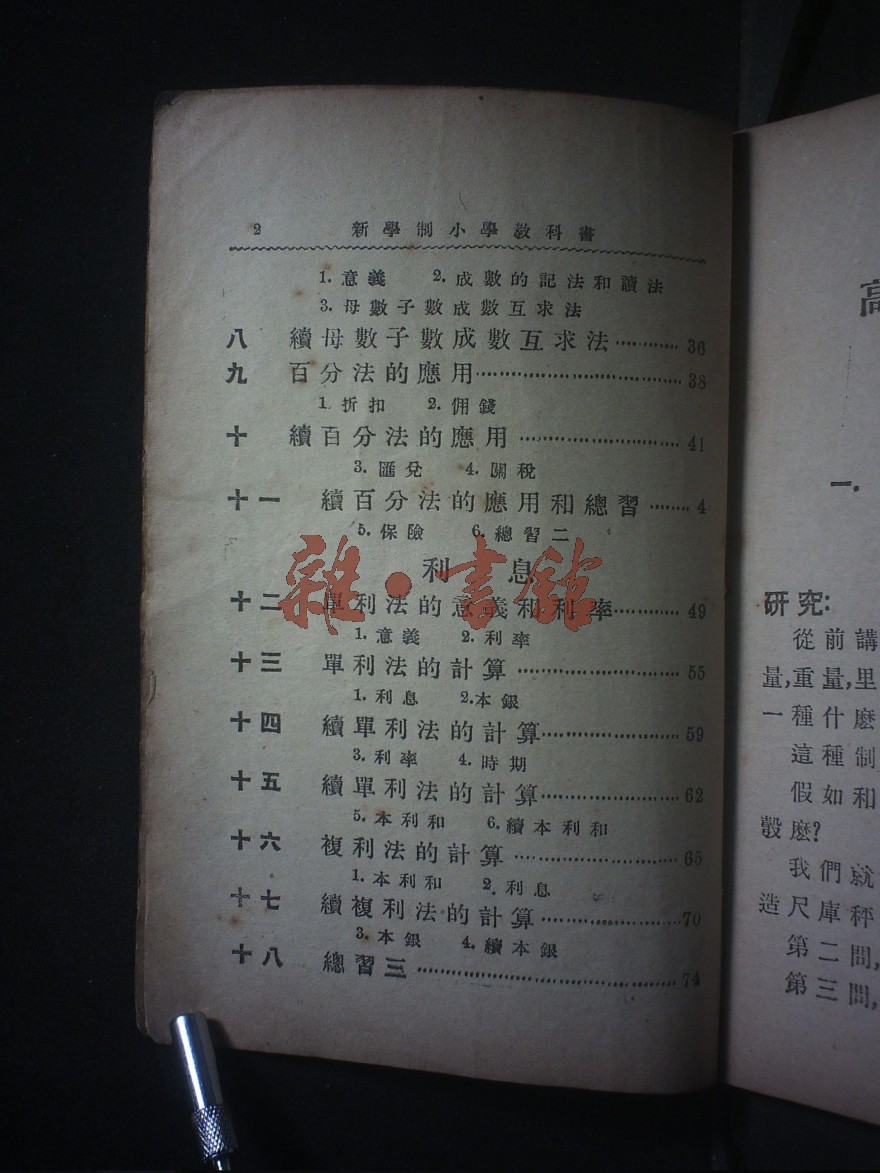 2 新學制小學教科書
1. 意義 2. 成數的記法和讀法
3. 母數子數成數互求法
八 續母數子數成數互求法············36
九 百分法的應用··························38
1. 折扣 2. 佣錢
十 續百分法的應用······················41
3. 匯兌 4. 關稅
十一 續百分法的應用和總習········4
5. 保險 6. 總習二
利息
雜·書館
十二 單利法的意義和利率············49
1. 意義 2. 利率
十三 單利法的計算······················55
1. 利息 2. 本銀
十四 續單利法的計算··················59
3. 利率 4. 時期
十五 續單利法的計算··················62
5. 本利和 6. 續本利和
十六 複利法的計算······················65
1. 本利和 2. 利息
十七 續複利法的計算··················70
3. 本銀 4. 續本銀
十八 總習三································74
高
一.
研究:
從前講
量,重量,里
一種什麽
這種制
假如和
彀麽?
我們就
造尺庫秤
第二問,
第三問,